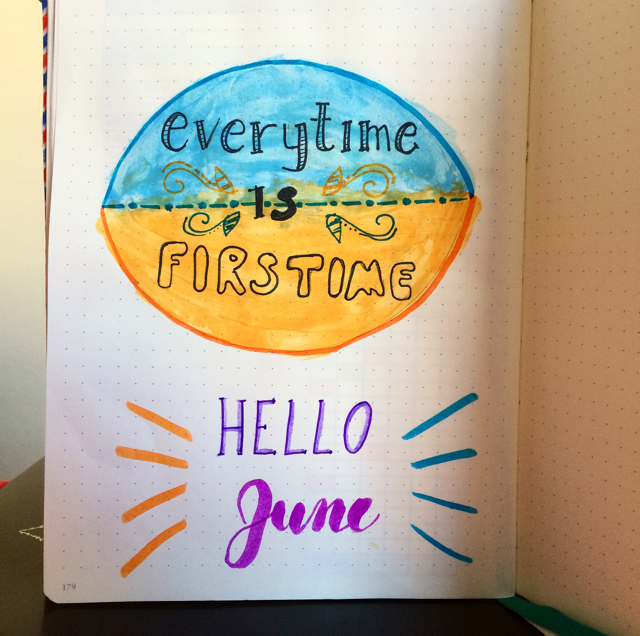 everytime
is
FIRSTIME
HELLO
June
179